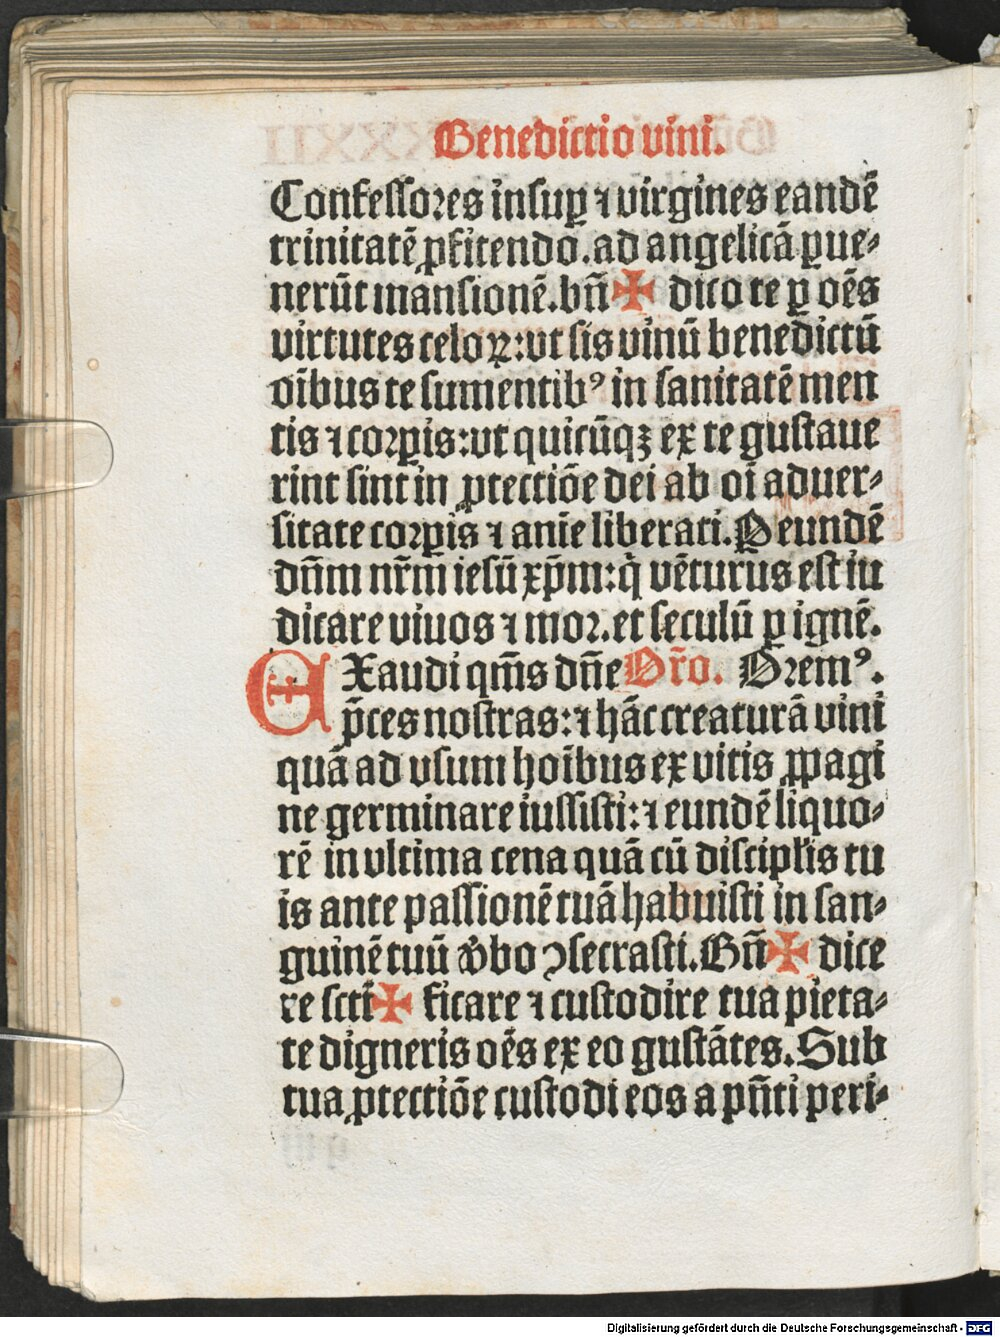 Benedictio vini.
Confessores insuꝑ ⁊ virgines eandē
trinitatē ꝓfitendo. ad angelicā ꝑue⸗
nerūt mansionē. bn̄ ✠ dico te ꝑ oēs
virtutes celoꝝ: vt sis vinū benedictū
oībus te sumentibꝰ in sanitatē men
tis ⁊ corꝑis: vt quicūqꝫ ex te gustaue
rint sint in ꝓtectiōe dei ab oī aduer⸗
sitate corꝑis ⁊ anīe liberati. Ꝑ eundē
dn̄m nr̄m iesū xp̄m: q̇ vēturus est iu
dicare viuos ⁊ mor. et seculū ꝑ ignē.
EXaudi qm̄s dn̄e Or̄o. Oremꝰ.
p̄ces nostras: ⁊ hāc creaturā vini
quā ad vsum hoībus ex vitis ꝓpagi
ne germinare iussisti: ⁊ eundē liquo⸗
rē in vltima cena quā cū discipl̄is tu
is ante passionē tuā habuisti in san⸗
guinē tuū v̄bo ꝯsecrasti. Bn̄ ✠ dice
re sctī ✠ ficare ⁊ custodire tua pieta⸗
te digneris oēs ex eo gustātes. Sub
tua ꝓtectiōe custodi eos a pn̄ti peri⸗
Digitalisierung gefördert durch die Deutsche Forschungsgemeinschaft - DFG